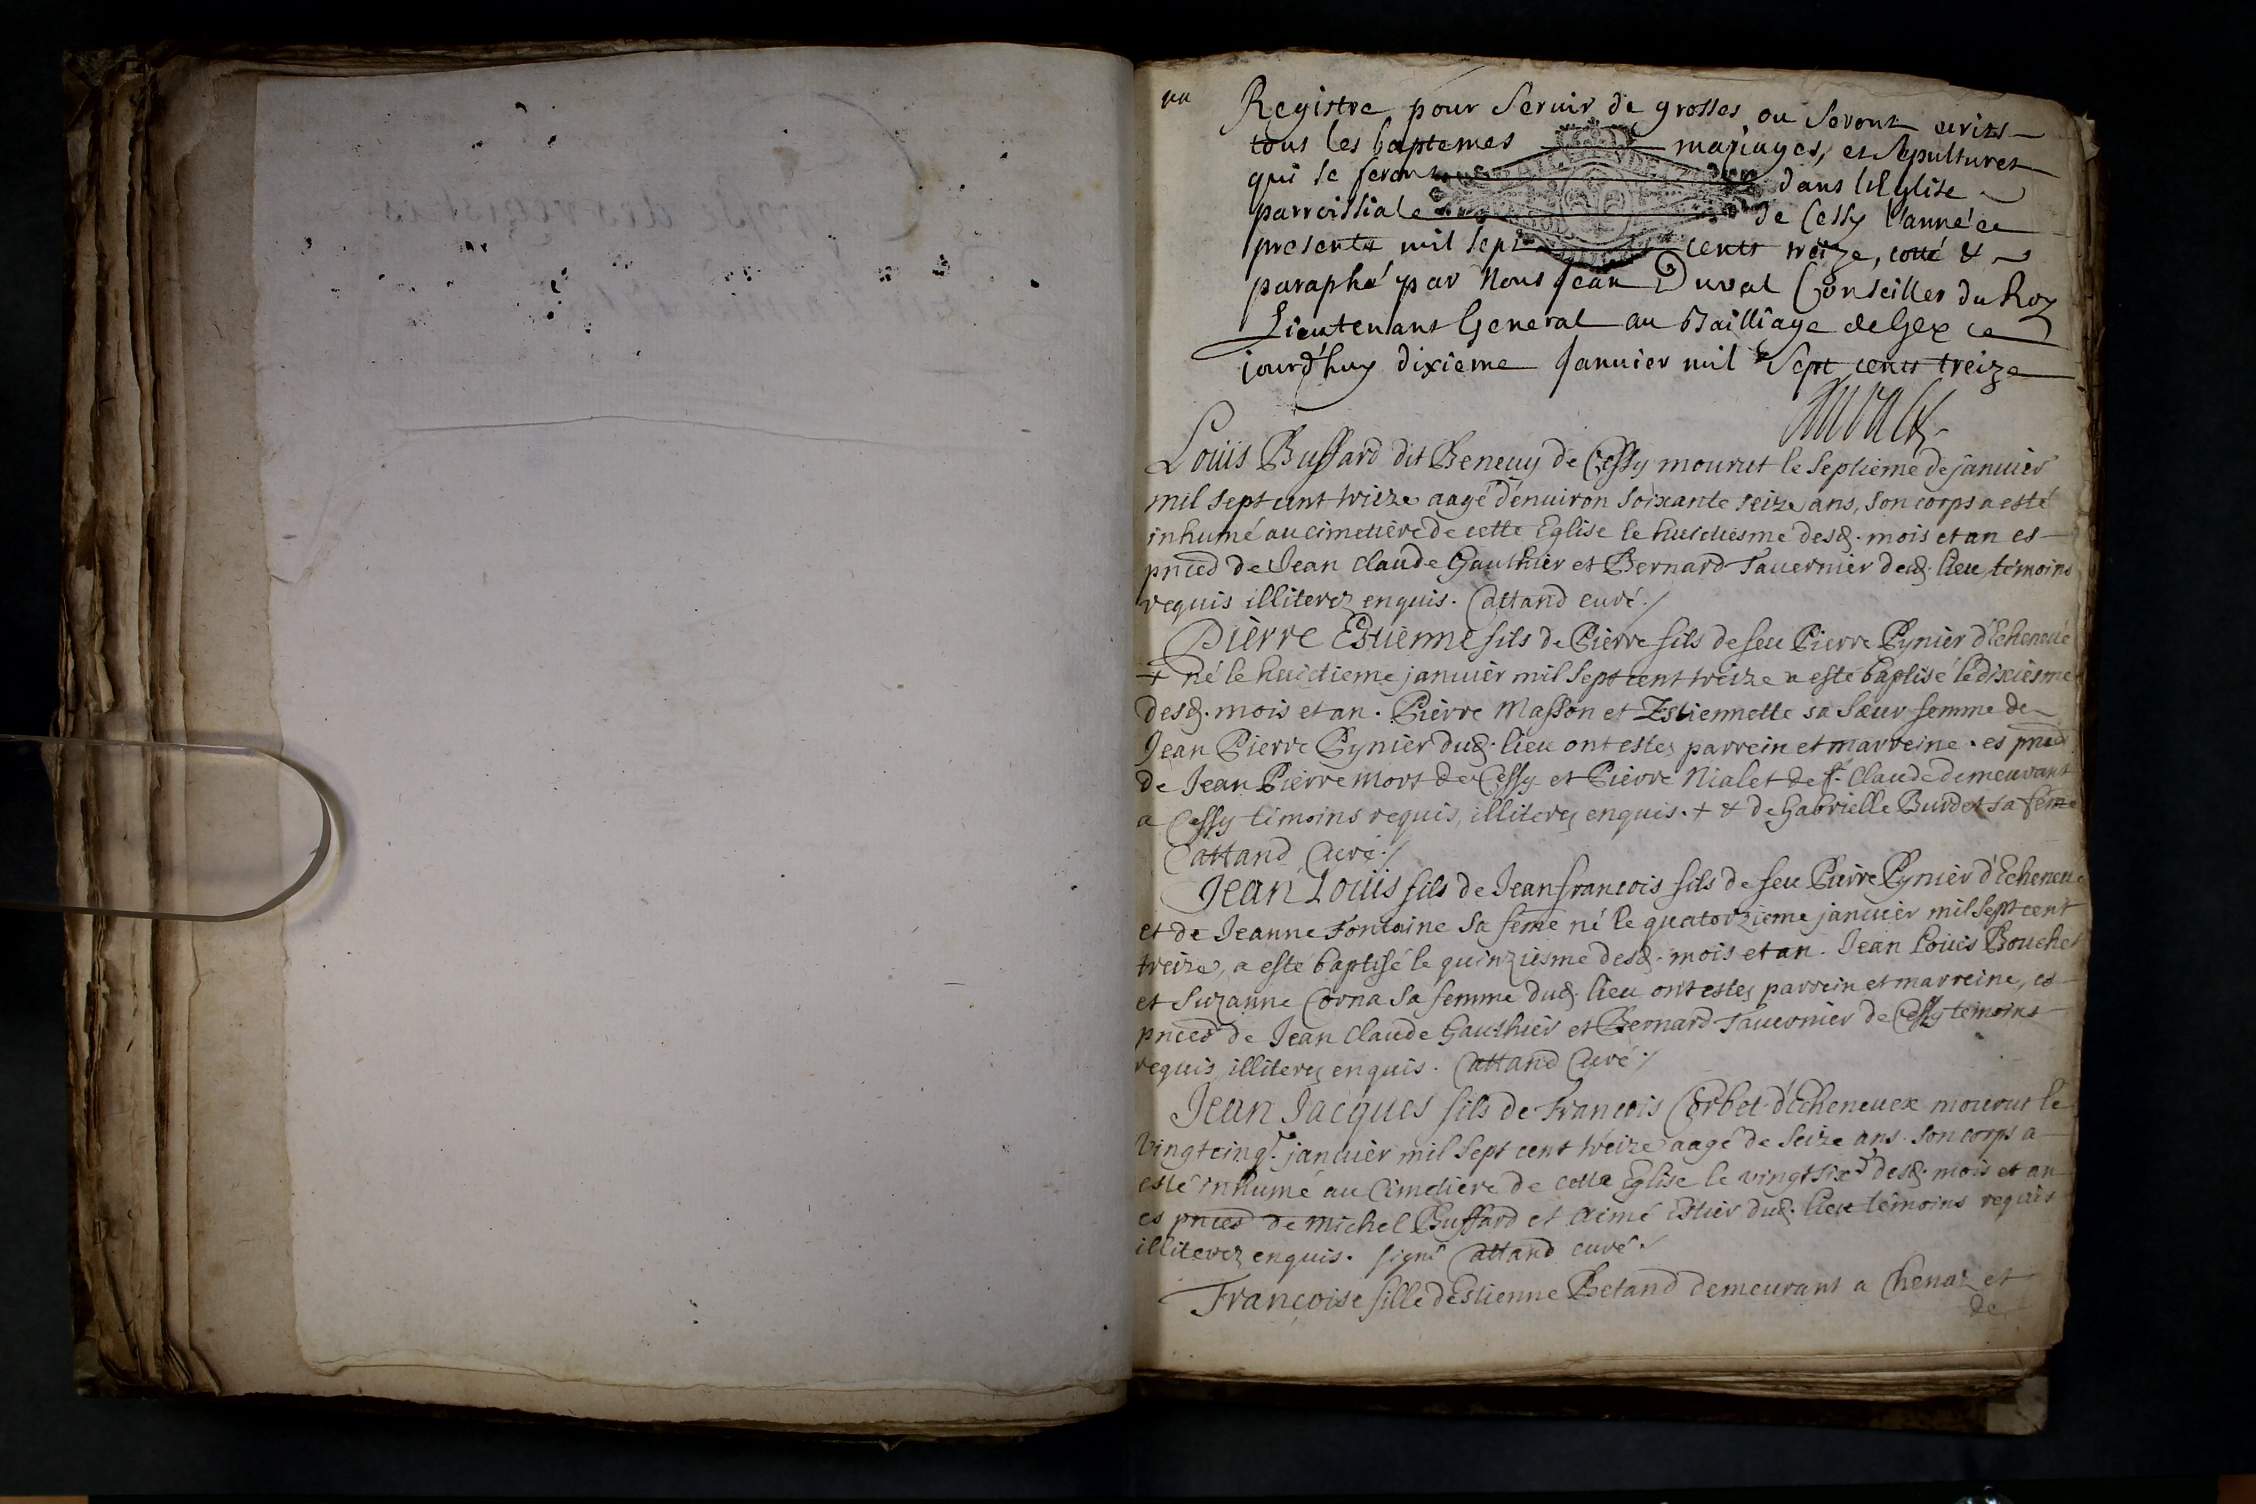 un
Registre pour Servir de grosses ou Seront ecrits
tous les baptemes mariages, et Sepultures
qui se feront dans l'Eglise
parroissiale de Cessy l'année
presente mil sept cents treize, cotté &
paraphé par Nous Jean Duval Conseiller du Roy
Lieutenant General au Bailliage de Gex ce
jourd'huy dixieme Janvier mil Sept cents treize
Duval
Louïs Buffard dit Beneuy de Cessy mourut le septieme de januier
mil sept cent treize aagé d'enuiron soixante seize ans, son corps a esté
inhumé au cimetière de cette Eglise le huictiesme desd. mois et an es
pnced de Jean Claude Gauthier et Bernard Tauernier dud. lieu, témoins
requis illiterez enquis. Cattand curé./
Pierre Estienne fils de Pierre fils de feu Pierre Pynier d'Echeneué
+ né le huictieme januier mil sept cent treize a esté baptisé le dixiesme
desd. mois et an. Pierre Masson et Estiennette sa Sœur femme de
Jean Pierre Pynier dud. lieu ont estez parrein et marreine. es pnced
de Jean Pierre Mort de Cessy et Pierre Nialet de St. Claude demeurant
a Cessy témoins requis, illiterez enquis. + & de Gabrielle Burdet sa feme
Cattand Curé./
Jean Louïs fils de Jean francois fils de feu Pierre Pynier d'Echeneue
et de Jeanne Fontaine sa feme né le quatorzieme januier mil sept cent
treize, a esté baptisé le quinziesme desd. mois et an. Jean Louïs Bouchet
et Suzanne Corna sa femme dud. lieu ont estez parrein et marreine, es
pnced de Jean Claude Gauthier et Bernard Tauernier de Cessy témoins
requis, illiterez enquis. Cattand Curé./
Jean Jacques fils de Francois Corbet d'Echeneuex mourut le
vingtcinq.e januier mil sept cent treize aagé de seize ans. son corps a
esté inhumé au Cimetiere de cette Eglise le vingtsix.e desd. mois et an
es pnced de Michel Buffard et Aimé Estier dud. lieu témoins requis
illiterez enquis. signé Cattand curé./
Francoise fille d'Estienne Betand demeurant a Chenaz et
de